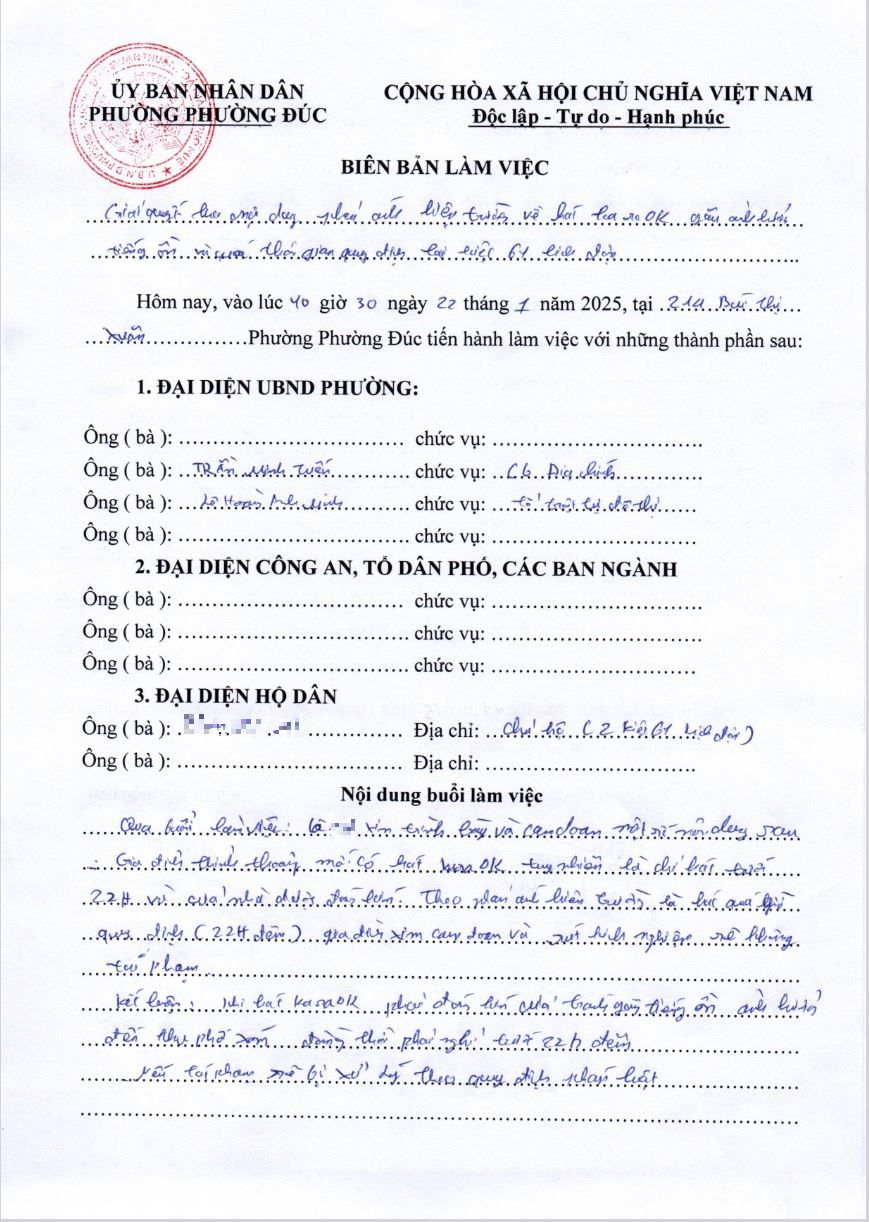 ỦY BAN NHÂN DÂN
PHƯỜNG PHƯỜNG ĐÚC
CỘNG HÒA XÃ HỘI CHỦ NGHĨA VIỆT NAM
Độc lập - Tự do - Hạnh phúc
BIÊN BẢN LÀM VIỆC
Giải quyết phản ánh hiện trường về hát karaOK gây ảnh hưởng
tiếng ồn và quá thời gian quy định tại kiệt 61 lịch đợi
Hôm nay, vào lúc giờ 30 ngày 22 tháng 1 năm 2025, tại Bùi Thị
Xuân Phường Phường Đúc tiến hành làm việc với những thành phần sau:
1. ĐẠI DIỆN UBND PHƯỜNG:
Ông ( bà ): chức vụ:
Ông ( bà ): TRẦN Minh Tuấn chức vụ: CB Địa chính
Ông ( bà ): Lê Hoàng chức vụ: tổ trật tự đô thị
Ông ( bà ): chức vụ:
2. ĐẠI DIỆN CÔNG AN, TỔ DÂN PHỐ, CÁC BAN NGÀNH
Ông ( bà ): chức vụ:
Ông ( bà ): chức vụ:
Ông ( bà ): chức vụ:
3. ĐẠI DIỆN HỘ DÂN
Ông ( bà ): Địa chỉ: chủ hộ (2 Kiệt 61 Lịch đợi)
Ông ( bà ): Địa chỉ:
Nội dung buổi làm việc
Qua buổi làm việc: bà xin trình bày và cam đoan một số nội dung sau
: Gia đình thỉnh thoảng mới có hát karaOK tuy nhiên là chỉ hát trước
22H và cửa nhà được đóng kín. Theo phản ánh hiện trường là hát quá giờ
quy định (22H đêm) gia đình xin cam đoan và rút kinh nghiệm sẽ không
tái phạm.
Kết luận: khi hát KaraOK phải đóng kín cửa tránh gây tiếng ồn ảnh hưởng
đến khu phố xóm đồng thời phải nghỉ trước 22h đêm
Nếu tái phạm sẽ bị xử lý theo quy định pháp luật